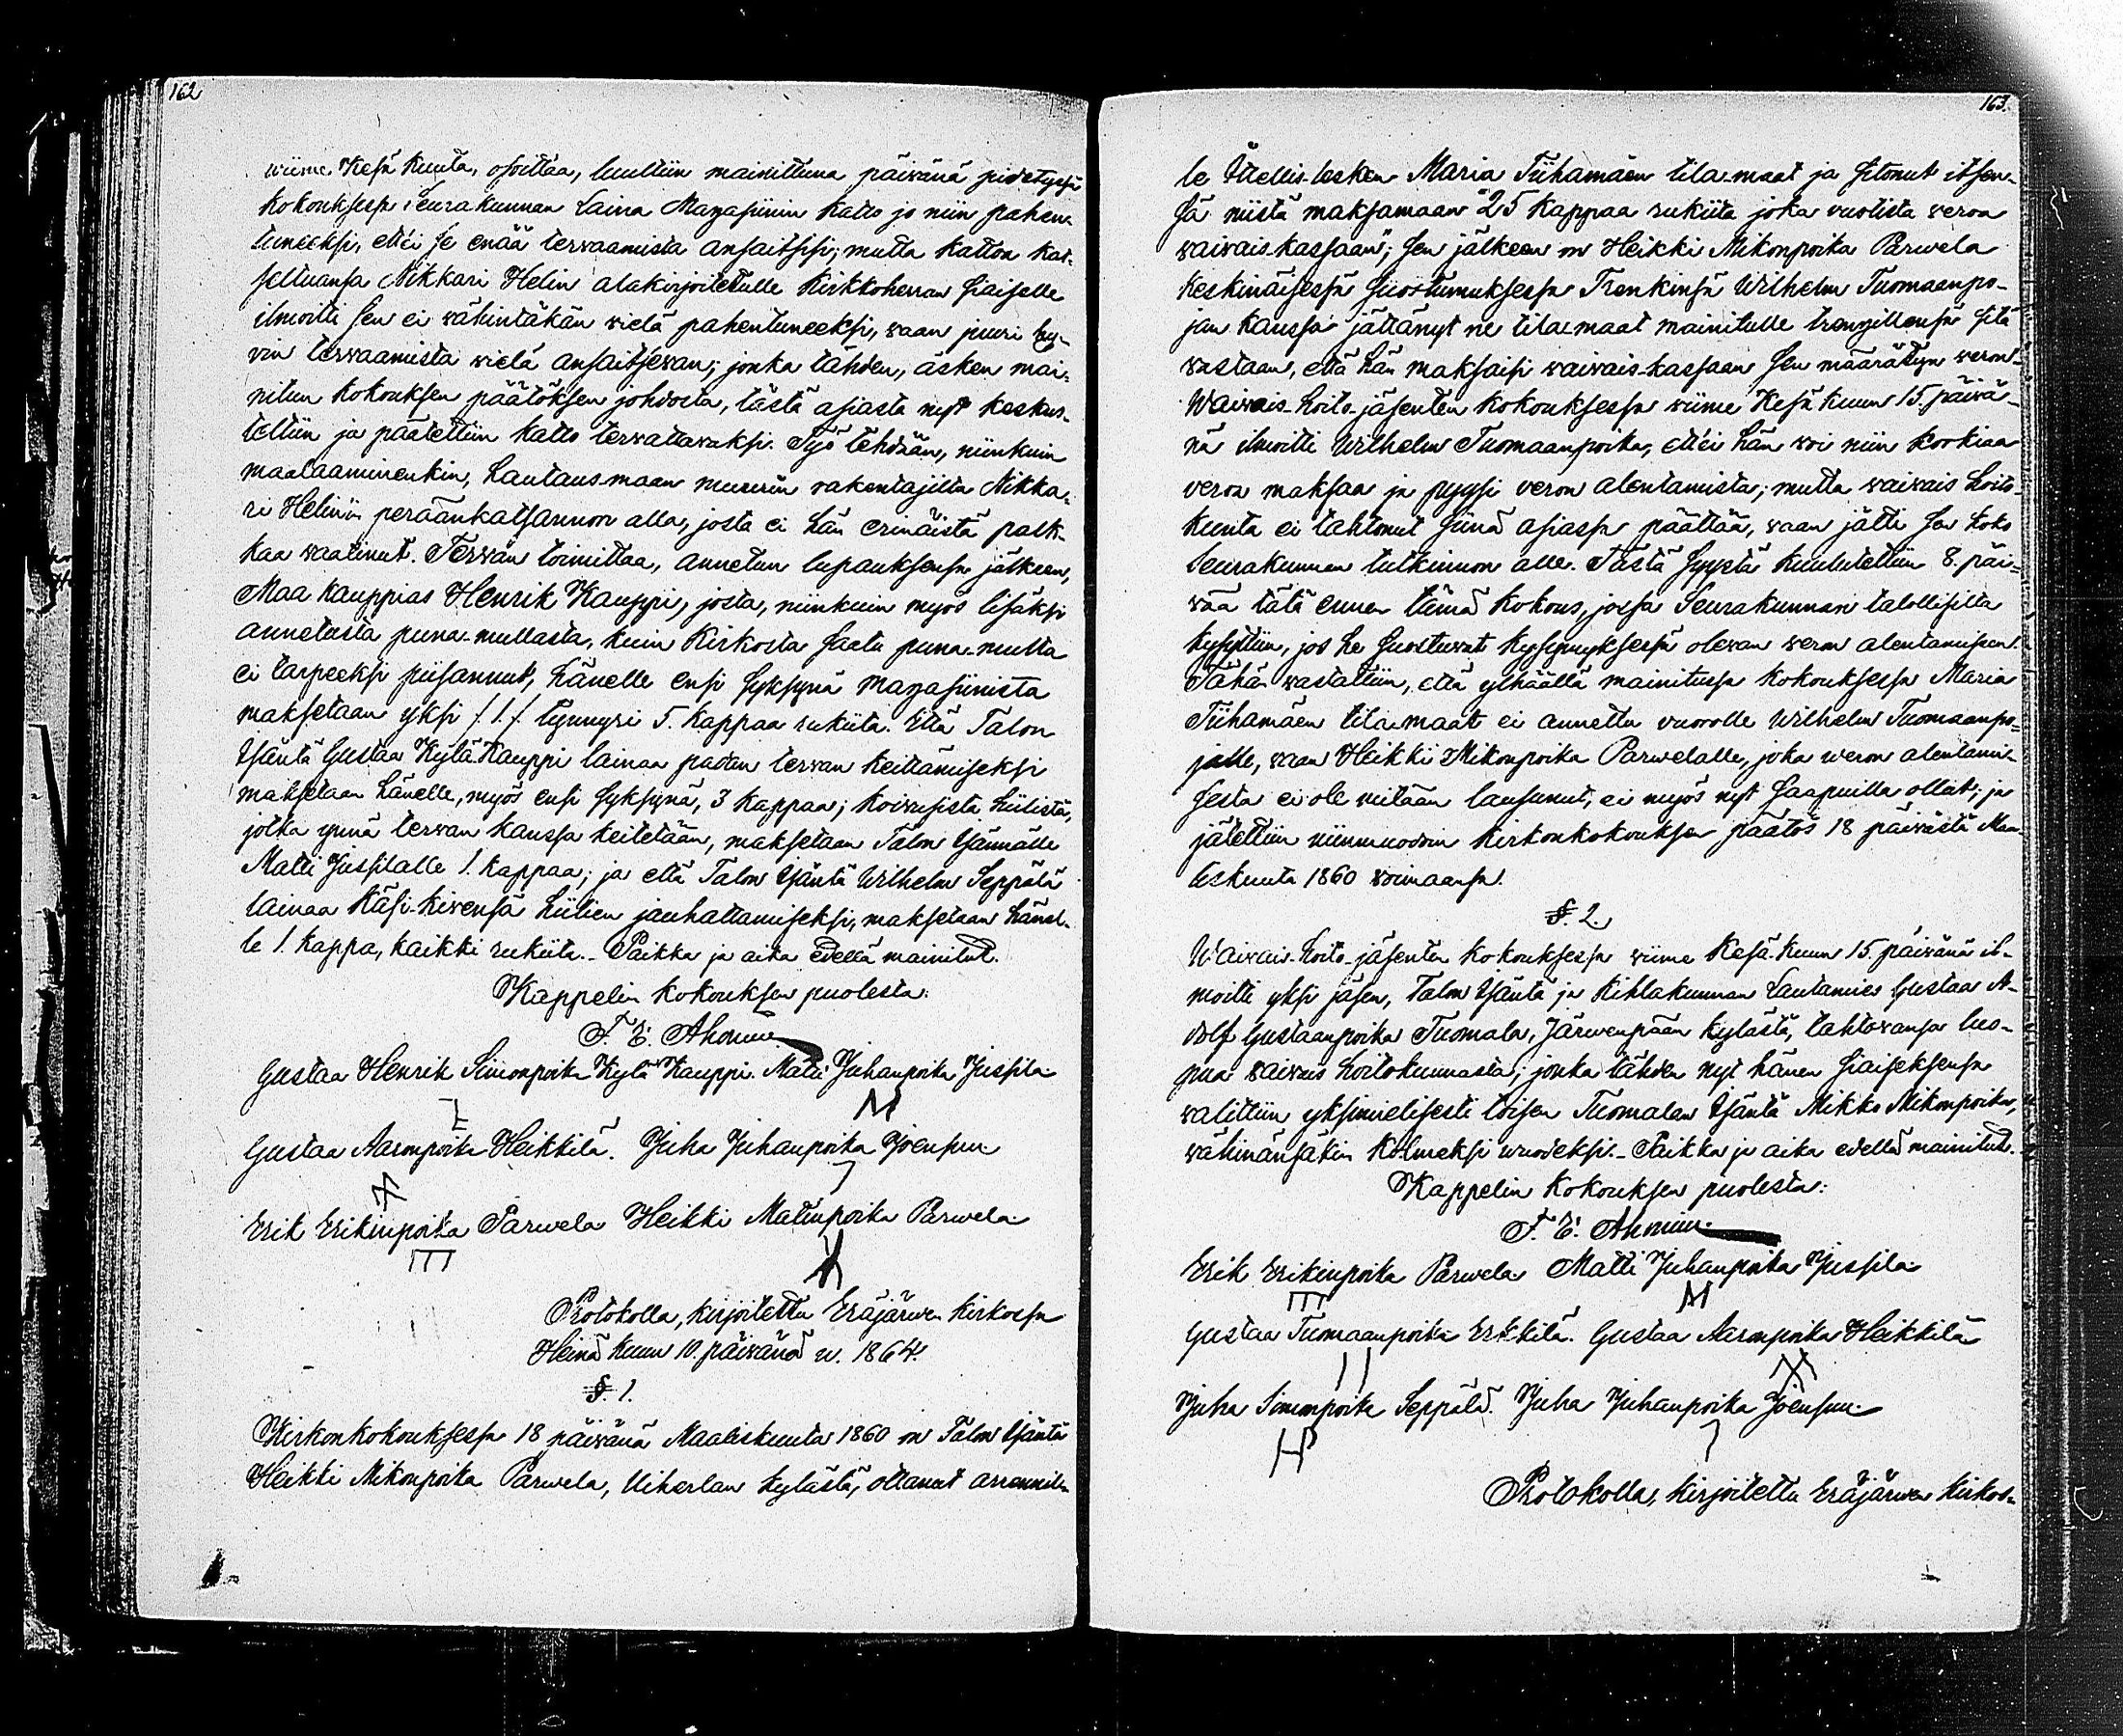 162
wiime Kesä kuuta, osoittaa, luultiin mainittuna päivänä pidetyssä
kokouksessa Seurakunnan Laina Magasiinin katto jo niin pahen-
tuneeksi, ett'ei se enää terwaamista ansaitsisi; mutta katton kat-
seltuansa Nikkari Helin alakirjoitetulle Kirkkoherran siaiselle
ilmoitti sen ei wähintäkän wielä pahentuneeksi, waan juuri hy-
vin terwaamista wielä ansaitsewan; jonka tähden, äsken mai-
nitun kokouksen päätöksen johdosta, tästä asiasta nyt keskus-
teltiin ja päätettiin katto terwattawaksi. Työ tehdään, niinkuin
maalaaminenkin, hautaus-maan muurin rakentajilta Nikka-
ri Helinin peräänkatsannon alla, josta ei hän erinäistä palk-
kaa waatinut. Terwan toimittaa, annetun lupauksensa jälkeen,
Maa kauppias Henrik Kauppi, josta, niinkuin myös lisäksi
annetusta puna-mullasta, kuin Kirkosta saatu puna-multa
ei tarpeeksi piisannut, hänelle ensi syksynä magasiinista
maksetaan yksi /.1./. tynnyri 5. kappaa rukiita. Että Talon
Isäntä Gustaa Kylä-Kauppi lainaa padan terwan keittämiseksi
maksetaan hänelle, myös ensi syksynä, 3 kappaa; koiwusista hiilistä,
jotka ynnä terwan kanssa keitetään, maksetaan Talon Isännälle
Matti Jussilalle 1. kappaa; ja että Talon Isäntä Wilhelm Seppälä
lainaa käsi-kivensä hiilien jauhattamiseksi, maksetaan hänel-
le 1. kappa, kaikki rukiita. Paikka ja aika edellä mainitut.
Kappelin kokouksen puolesta:
F. E. Ahonius
Gustaa Henrik Simonpoika Kylä Kauppi. Matti Juhanpoika Jussila
M
Gustaa Aaronpoika Heikkilä. Juha Juhanpoika Joensuu
Erik Erikinpoika Parwela Heikki Matinpoika Parwela
Protokolla, kirjoitettu Eräjärwen kirkossa
Heinä kuun 10. päivänä w. 1864.
§. 1.
Kirkonkokouksessa 18 päivänä Maaliskuuta 1860 on Talon Isäntä
Heikki Mikonpoika Parwela, Uiherlan kylästä, ottanut arrennil-
163.
le Itellis-lesken Maria Tiihamäen tila-maat ja sitonut itsen-
sä niistä maksamaan "25 kappaa rukiita joka vuotista weroa
waiwais-kassaan"; sen jälkeen on Heikki Mikonpoika Parwela
keskinäisessä suostumuksessa Trenkinsä Wilhelm Tuomaanpo-
jan kanssa jättänyt ne tila-maat mainitulle trengillensä sitä
wastaan, että hän maksaisi waiwais-kassaan sen määrätyn weron.
Waiwais-hoito-jäsenten kokouksessa wiime Kesä kuun 15. päivä-
nä ilmoitti Wilhelm Tuomaanpoika, ett'ei hän woi niin korkiaa
veroa maksaa ja pyysi veron alentamista; mutta waiwais hoito-
kunta ei tahtonut siinä asiassa päättää, waan jätti sen koko
Seurakunnan tutkinnon alle. Tästä syystä kuulutettiin 8. päi-
wää tätä ennen tämä kokous, jossa Seurakunnan talollisilta
kysyttiin, jos he suostuwat kysymyksessä olevan weron alentamiseen.
Tähän wastattiin, että ylhäällä mainitussa kokouksessa Maria
Tiihamäen tila-maat ei annettu vuorolle Wilhelm Tuomaanpo-
jalle, waan Heikki Mikonpoika Parwelalle, joka weron alentami-
sesta ei ole mitään lausunut, ei myös nyt saapuilla ollut; ja
jätettiin niinmuodoin kirkonkokouksen päätös 18 päivästä Maa-
liskuuta 1860 woimaansa.
§. 2.
Waiwais-hoito-jäsenten kokouksessa wiime Kesä-kuun 15. päivänä il-
moitti yksi jäsen, Talon Isäntä ja Kihlakunnan Lautamies Gustaa A-
dolf Gustaanpoika Tuomala, Järwenpään kylästä, tahtowansa luo-
pua waiwais hoitokunnasta; jonka tähden nyt hänen siaiseksensa
walittiin yksimielisesti toisen Tuomalan Isäntä Mikko Mikonpoika,
wähinänsäkin kolmeksi wuodeksi. Paikka ja aika edellä mainitut.
Kappelin kokouksen puolesta:
F. E. Ahonius
Erik Erikinpoika Parwela Matti Juhanpoika Jussila
M
Gustaa Tuomaanpoika Erkkilä. Gustaa Aaronpoika Heikkilä
Juha Simonpoika Seppälä. Juha Juhanpoika Joensuu.
Protokolla, kirjoitettu Eräjärwen kirkos-